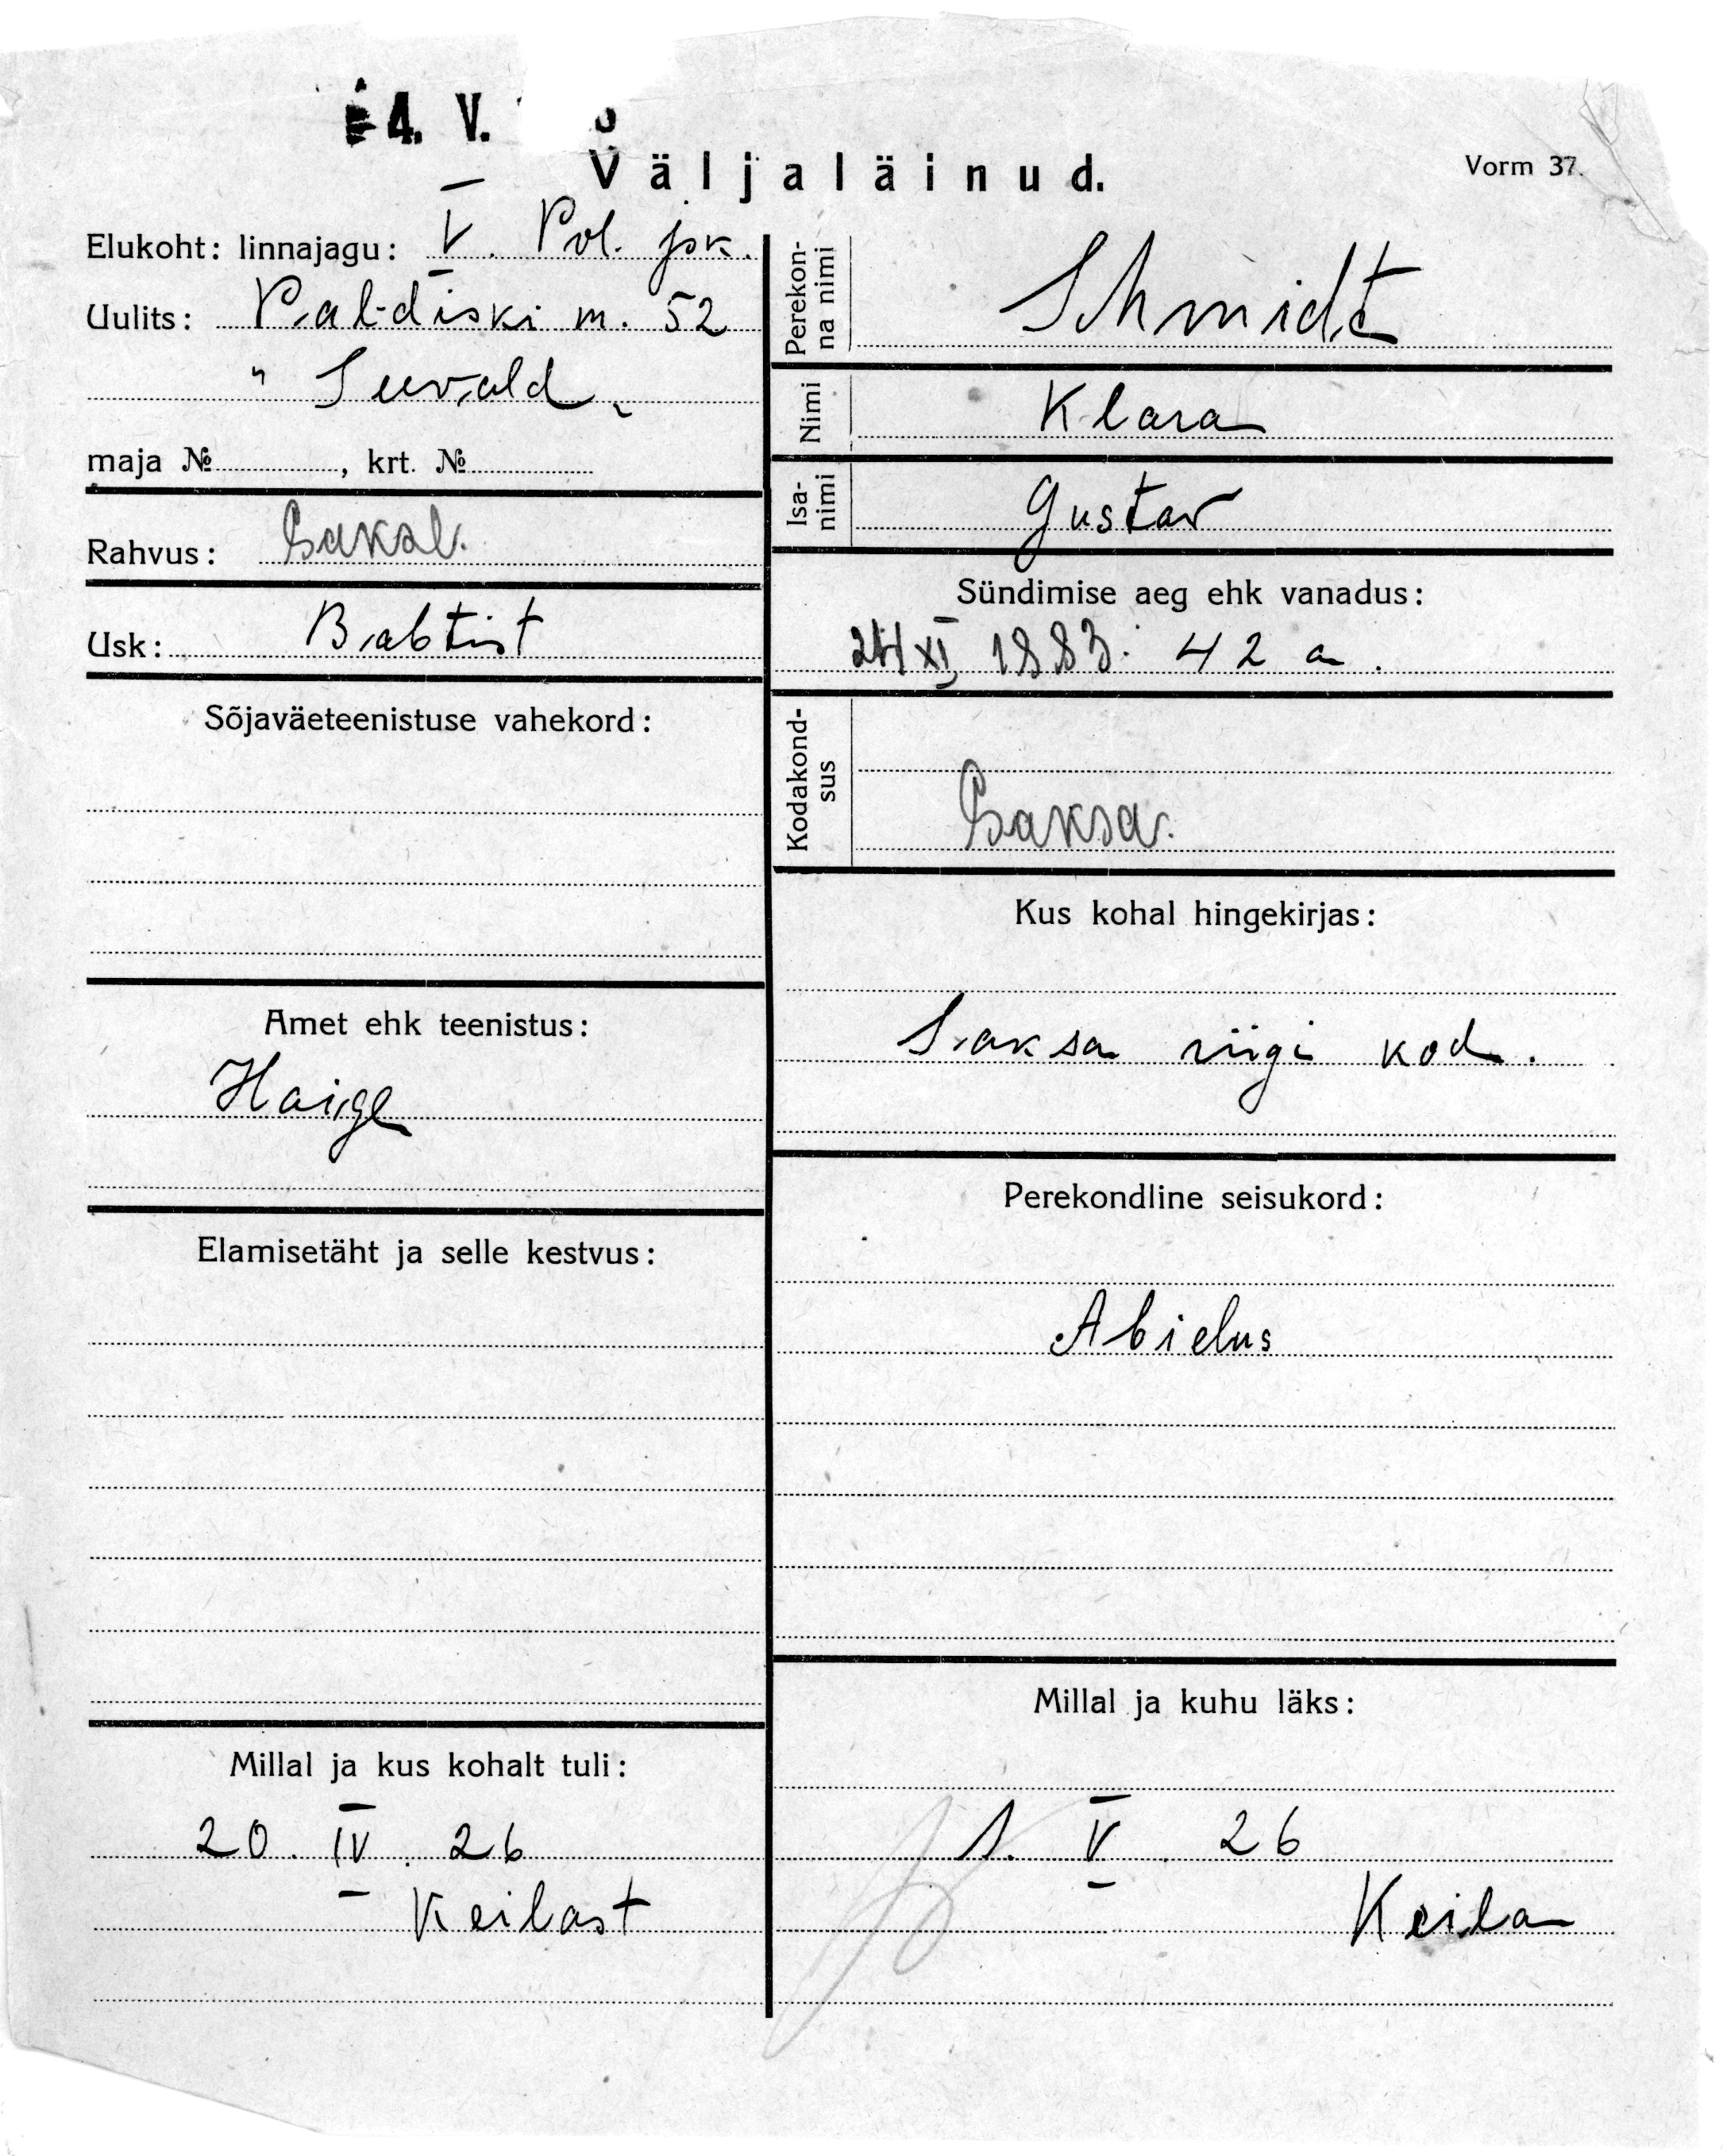 4. V.
Väljaläinud.
Vorm 37.
Elukoht: linnajagu: V. Pol. jsk.
Uulits: Paldiski m. 52
" Seevald"
maja № , krt. №
Rahvus: Saksl.
Usk: Babtist
Sõjaväeteenistuse vahekord:
Amet ehk teenistus:
Haige
Elamisetäht ja selle kestvus:
Millal ja kus kohalt tuli:
20. IV. 26
Keilast
Perekon-
na nimi
Schmidt
Nimi Klara
Isa-
nimi
Gustav
Sündimise aeg ehk vanadus:
XI 1883. 42 a.
Kodakond-
sus
Saksa.
Kus kohal hingekirjas:
Saksa riigi kod.
Perekondline seisukord:
Abielus
Millal ja kuhu läks:
1. V. 26
Keila